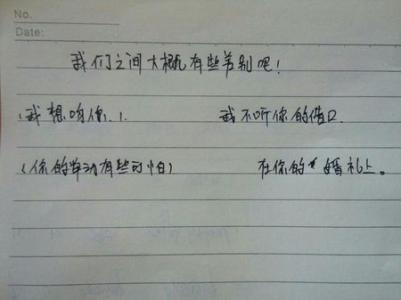 No.
Date:
我们之间大概有些差别吧!
我想 你 我不听你的借口.
(你的举动有些可怕) 在你的 婚礼上。